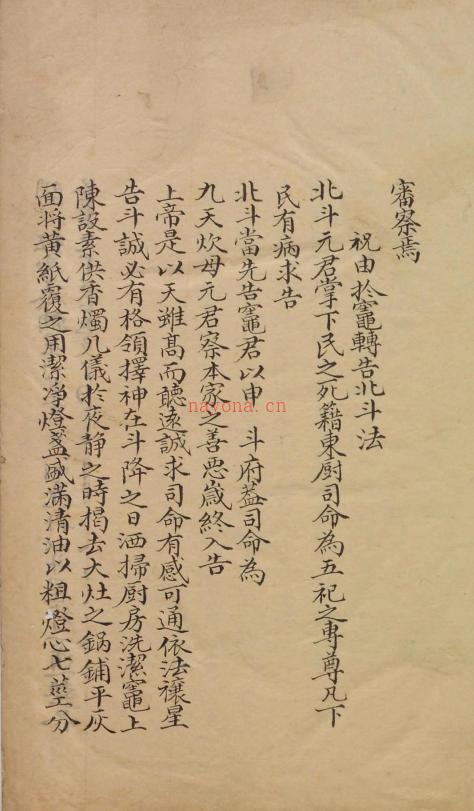 審察焉
祝由於竈轉告北斗法
北斗元君掌下民之死籍東厨司命為五祀之專尊凡下
民有病求告
北斗當先告竈君以申 斗府葢司命為
九天炊母元君察本家之善悪歲終入告
上帝是以天雖髙而聽遠誠求司命有感可通依法禳星
告斗誠必有格領擇神在斗降之日洒掃厨房洗潔竈上
陳設素供香燭几儀於夜静之時揭去大灶之鍋鋪平灰
面將黄紙覆之用潔净燈盞盛滿清油以粗燈心七莖分
nayona.cn